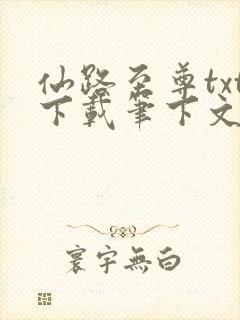 仙路至尊txt
下载笔下文
寰宇無白